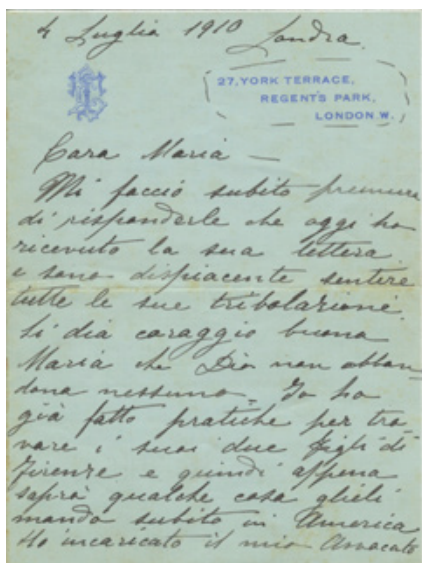 4 Luglia 1910 Londra.
27, YORK TERRACE,
REGENT'S PARK,
LONDON. W.
Cara Maria —
Mi faccio subito premura
di risponderle che oggi ho
ricevuto la sua lettera
e sono dispiacente sentire
tutte le sue tribolazione.
Si dia coraggio buona
Maria che Dio non abban-
dona nessuno. Io ho
già fatto pratiche per tro-
vare i suoi due figli di
Firenze e quindi appena
saprò qualche cosa glieli
mando subito in America
Ho incaricato il mio Avvocato